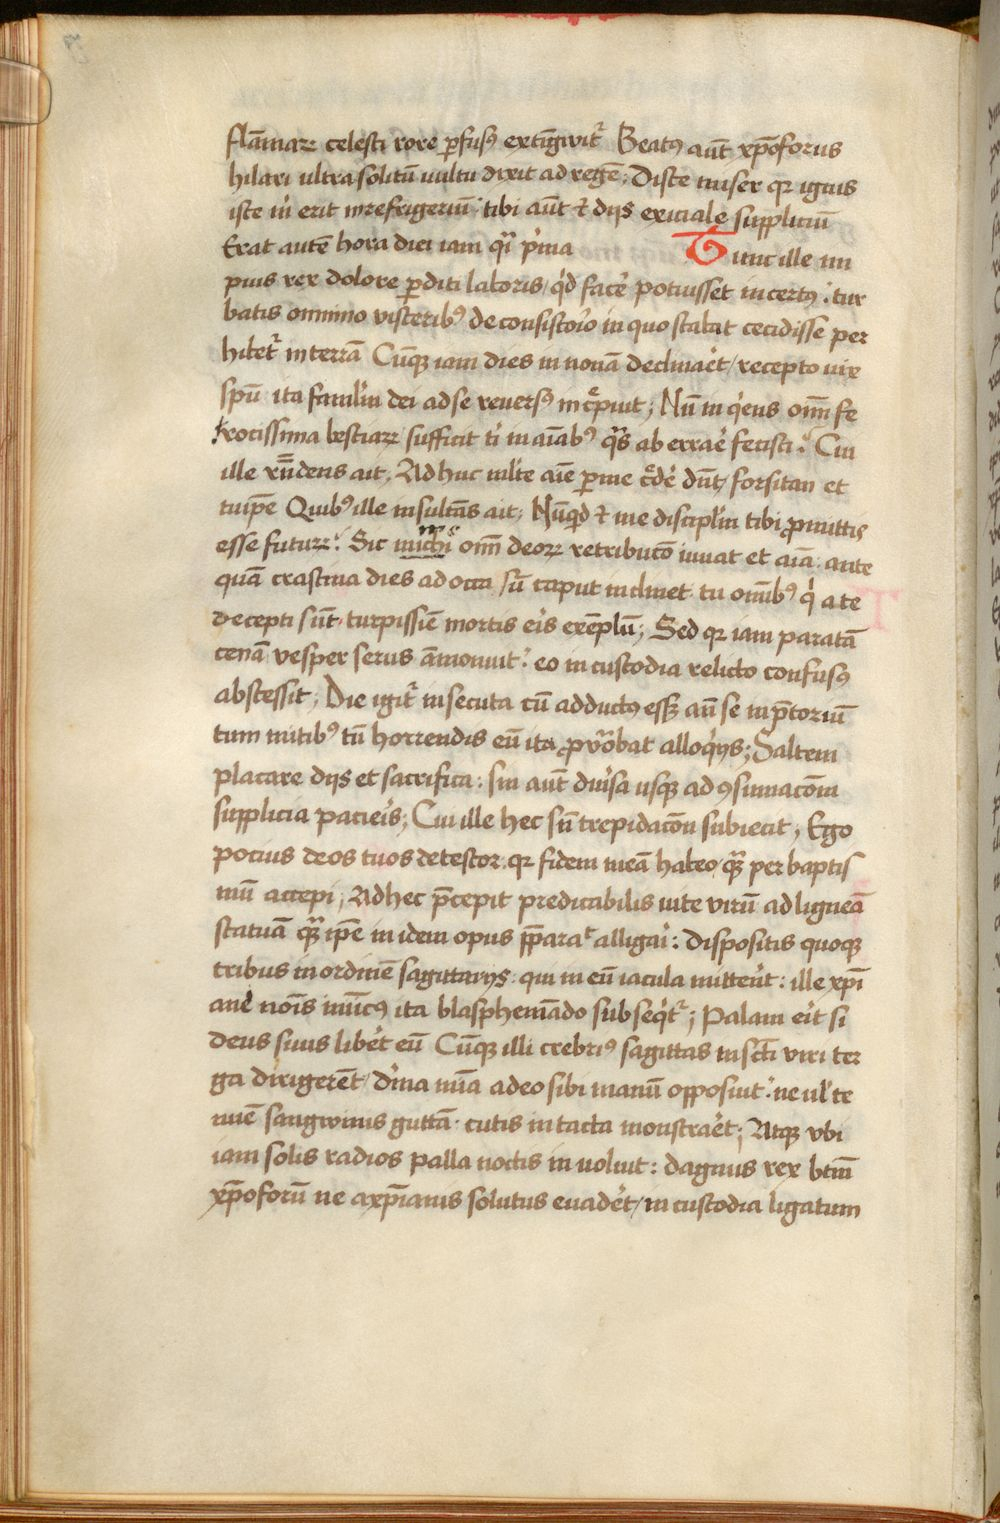 flām̄arꝝ celesti rore ꝑfusꝰ extīgwit᷑ Beatꝰ aūt xp̄oforus
hilari ultra solitū uultu dixit ad regē; Disce miser qꝛ ignis
iste m̓ erit in refrigeriū· tibi aūt ⁊ dijs exiciale suppliciū
Erat autē hora diei iam qͣi p̓ma Tunc ille im
pius rex dolore ꝑditi laboris/ qͥd facẽ potuisset incertꝰ: tur
batis omnino visceribꝰ de consistorio in quo stabat cecidisse per
hibet᷑ in terrā Cūqꝫ iam dies in nonā declinaẽt/ recepto vix
sp̄u ita famlm̄ dei ad se reuersꝰ incͤpuit; Nū inqͥens om̄ fe
rocissima bestiarꝝ sufficit ti in aīabꝰ qͣs ab errae fecisti? Cui
ille rn̄dens ait, Adhuc ml̓te aīe ꝑ me cͤdẽ dn̄t/ forsitan et
tu ip̄e Quibꝰ ille insultās ait; Nūqͥd ⁊ me discipl̓m tibi ꝓmittis
esse futurꝝ? Sic michi om̄ deorꝝ retribucō iuuat et aīa· ante
quā crastina dies ad occasū caput inclinet tu om̄ibꝰ qͥ a te
decepti sūt turpissīe mortis eis exēplū; Sed qꝛ iam paratā
cenā vesper serus ām̄onuit: eo in custodia relicto confusꝰ
abscessit; Die igit᷑ insecuta cū adductꝰ essꝫ an̄ se in p̄toriū
tum mitibꝰ tū horrendis eū ita ꝓuͦobat alloqͥjs; Saltem
placare dijs et sacrifica· sin aūt diu̓sa usqꝫ ad ꝯsumacōm
supplicia pacieis; Cui ille hec sn̄ trepidacōn subiecit, Ego
pocius deos tuos detestor· qꝛ fidem meā habeo/ qͣꝫ per baptis
mū accepi; Ad hec p̄cepit predicabilis uite virū ad ligneā
statuā qͣꝫ ip̄e in idem opus p̄parat᷑ alligai: dispositis quoqꝫ
tribus in ordinē sagittarijs· qui in eū iacula mittẽt: ille xp̄i
ani nōis inīcꝰ ita blasphemādo subseqͥt᷑; Palam eit si
deus suus libẽt eū Cūqꝫ illi crebriꝰ sagittas in scti viri ter
ga dirigerēt/ diͥna mīa adeo sibi manū opposuit· ne ul̓ te
nuē sangwinis guttā· cutis intacta monstraẽt; Atqꝫ vbi
iam solis radios palla noctis inuoluit: dagnus rex btm̄
xp̄oforū ne axp̄ianis solutus euadẽt/ in custodia ligatum